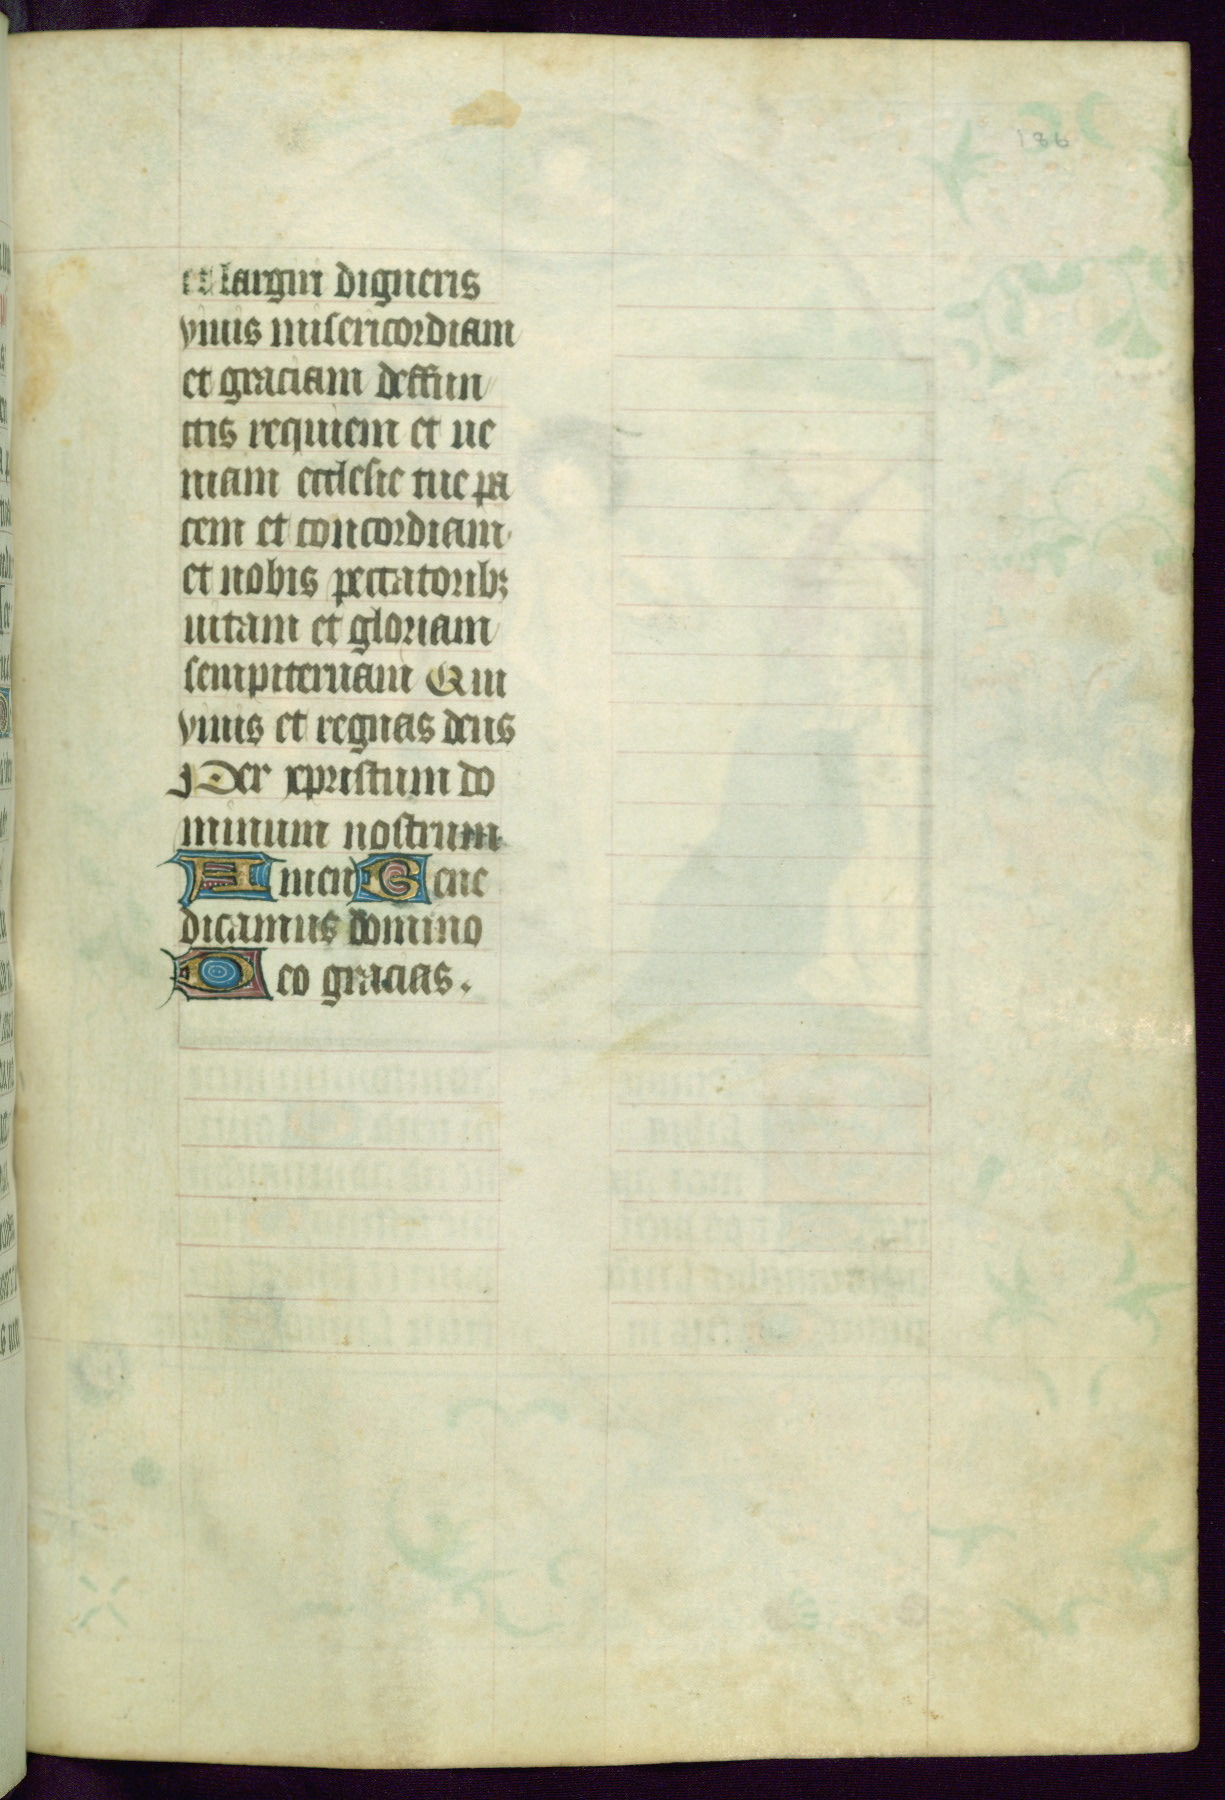 186
et largiri digneris
viuis misericordiam
et graciam deffun
ctis requiem et ue
niam ecclesie tue pa
cem et concordiam
et nobis peccatoribꝫ
uitam et gloriam
sempiternam Qui
viuis et regnas deus
Per xpristum do
minum nostrum
Amen Bene
dicamus domino
Deo gracias.